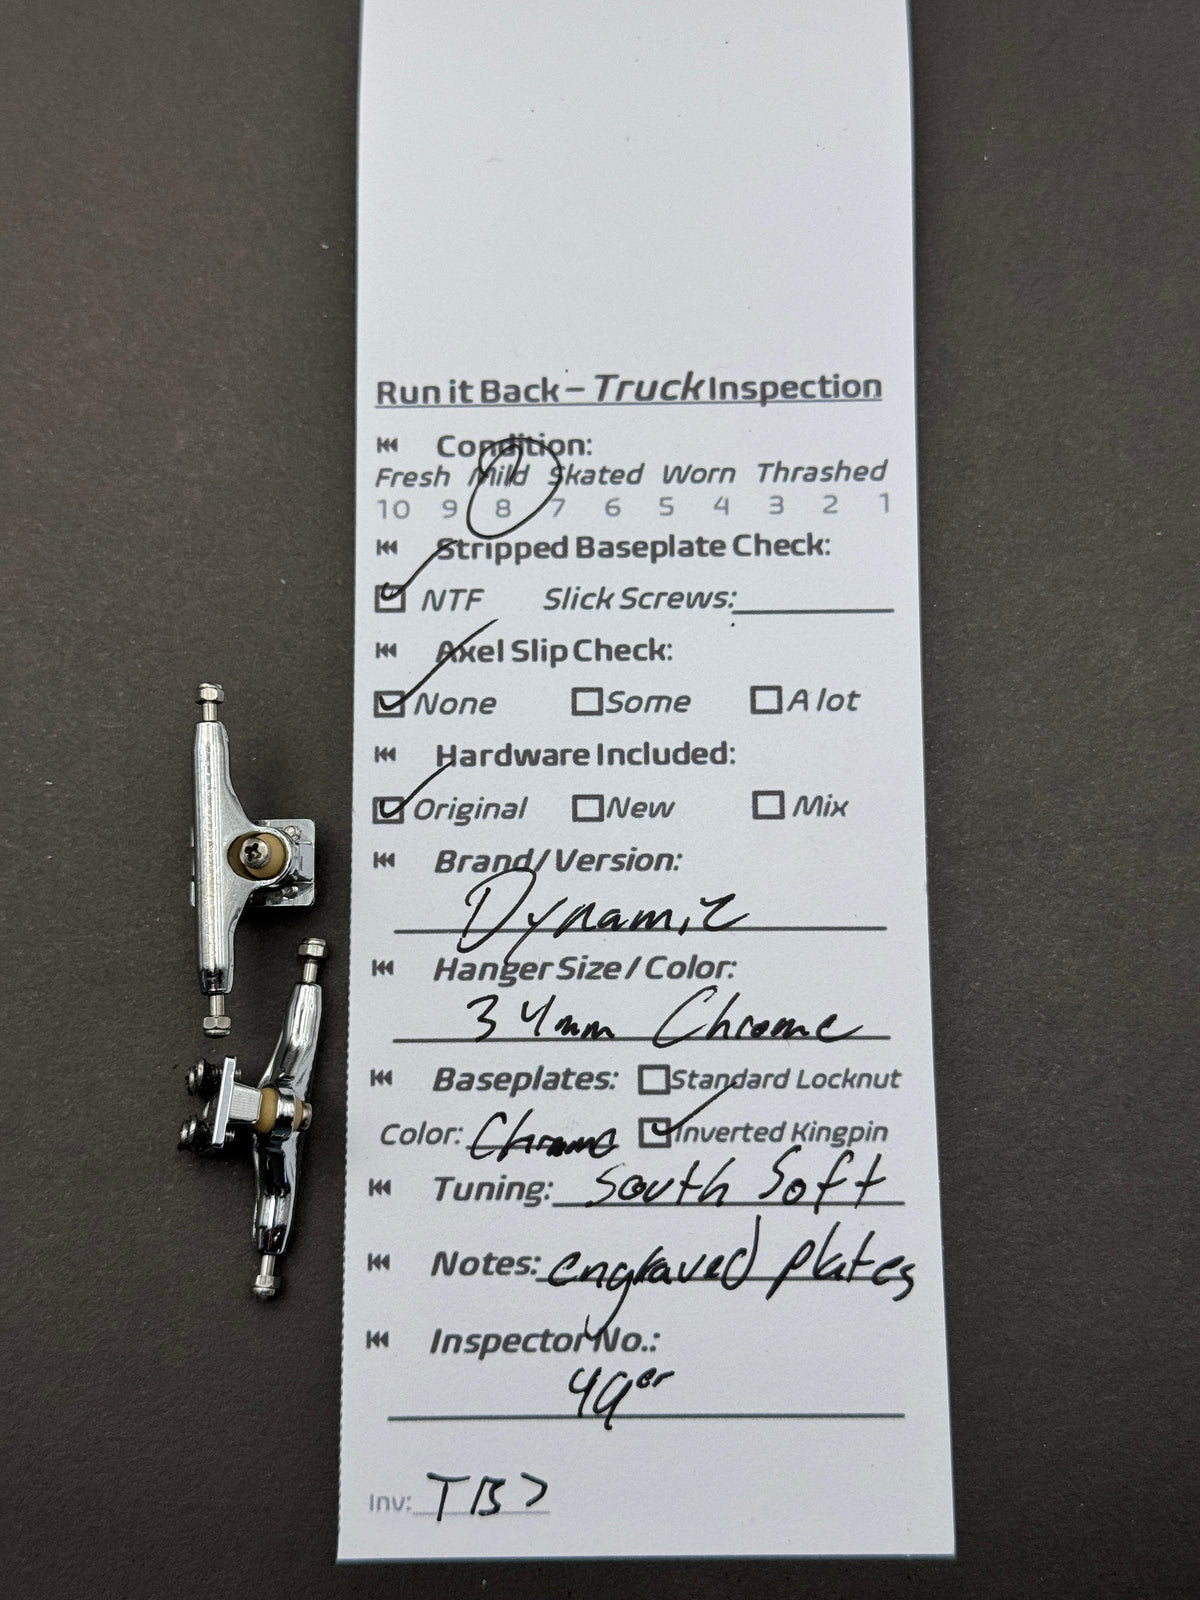 Run it Back – Truck Inspection
Condition:
Fresh Mild Skated Worn Thrashed
10 9 8 7 6 5 4 3 2 1
Stripped Baseplate Check:
NTF Slick Screws:
Axel Slip Check:
None Some A lot
Hardware Included:
Original New Mix
Brand/Version:
Dynamic
Hanger Size / Color:
34mm Chrome
Baseplates: Standard Locknut
Color: Chrome Inverted Kingpin
Tuning: South Soft
Notes: engraved plates
Inspector No.:
49er
Inv: